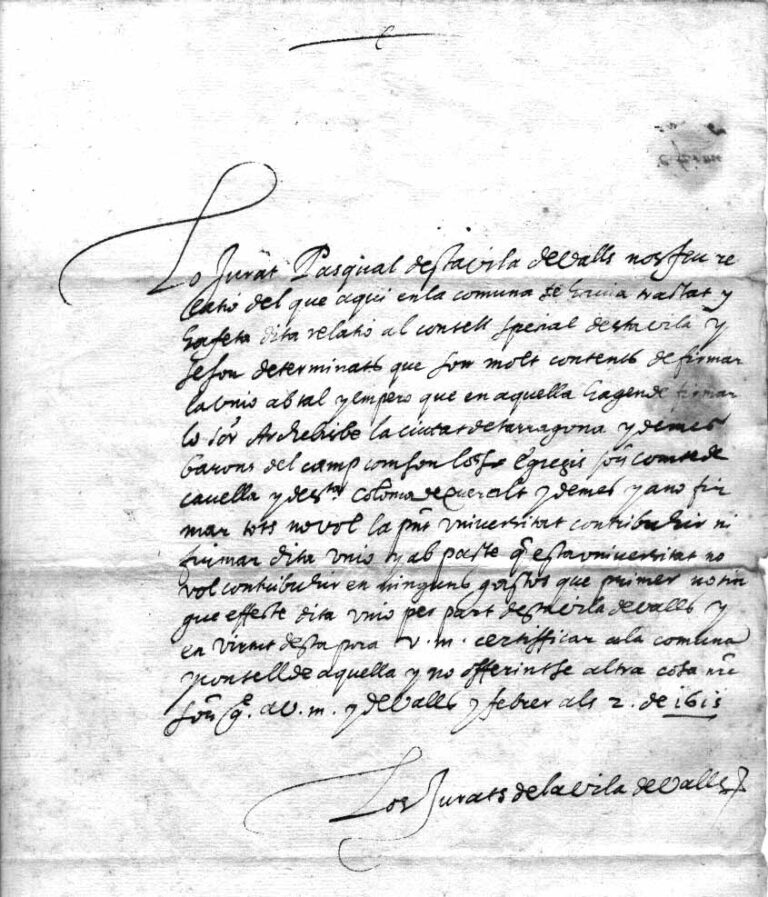 Lo Jurat Pasqual destavila devalls nosfeu re
latio del que aqui enla comuna se havia trastat y
hafeta dita relatio al consell spesial destavila y
seson determinats que son molt contents de firmar
lavnio abtal yempero que en aquella hagende firmar
lo sor Archebisbe la ciutat detarragona y demes
barons del camp comson los Egregis comtede
cauella y de sta coloma de Queralt y demes y ano fir
mar tots novol la pnt vniversitat contribuhir ni
firmar dita vnio y ab paste q estavniversitat no
vol contribuhir en ninguns gastos que primer notin
gue effeste dita vnio per part destavila devalls y
en virtut desta pora v. m. certifficar ala comuna
yconsell de aquella y no offerintse altra cosa nre
sor g. a v. m. y de Valls y febrer als 2. de 1615
Los Jurats delavila devalls